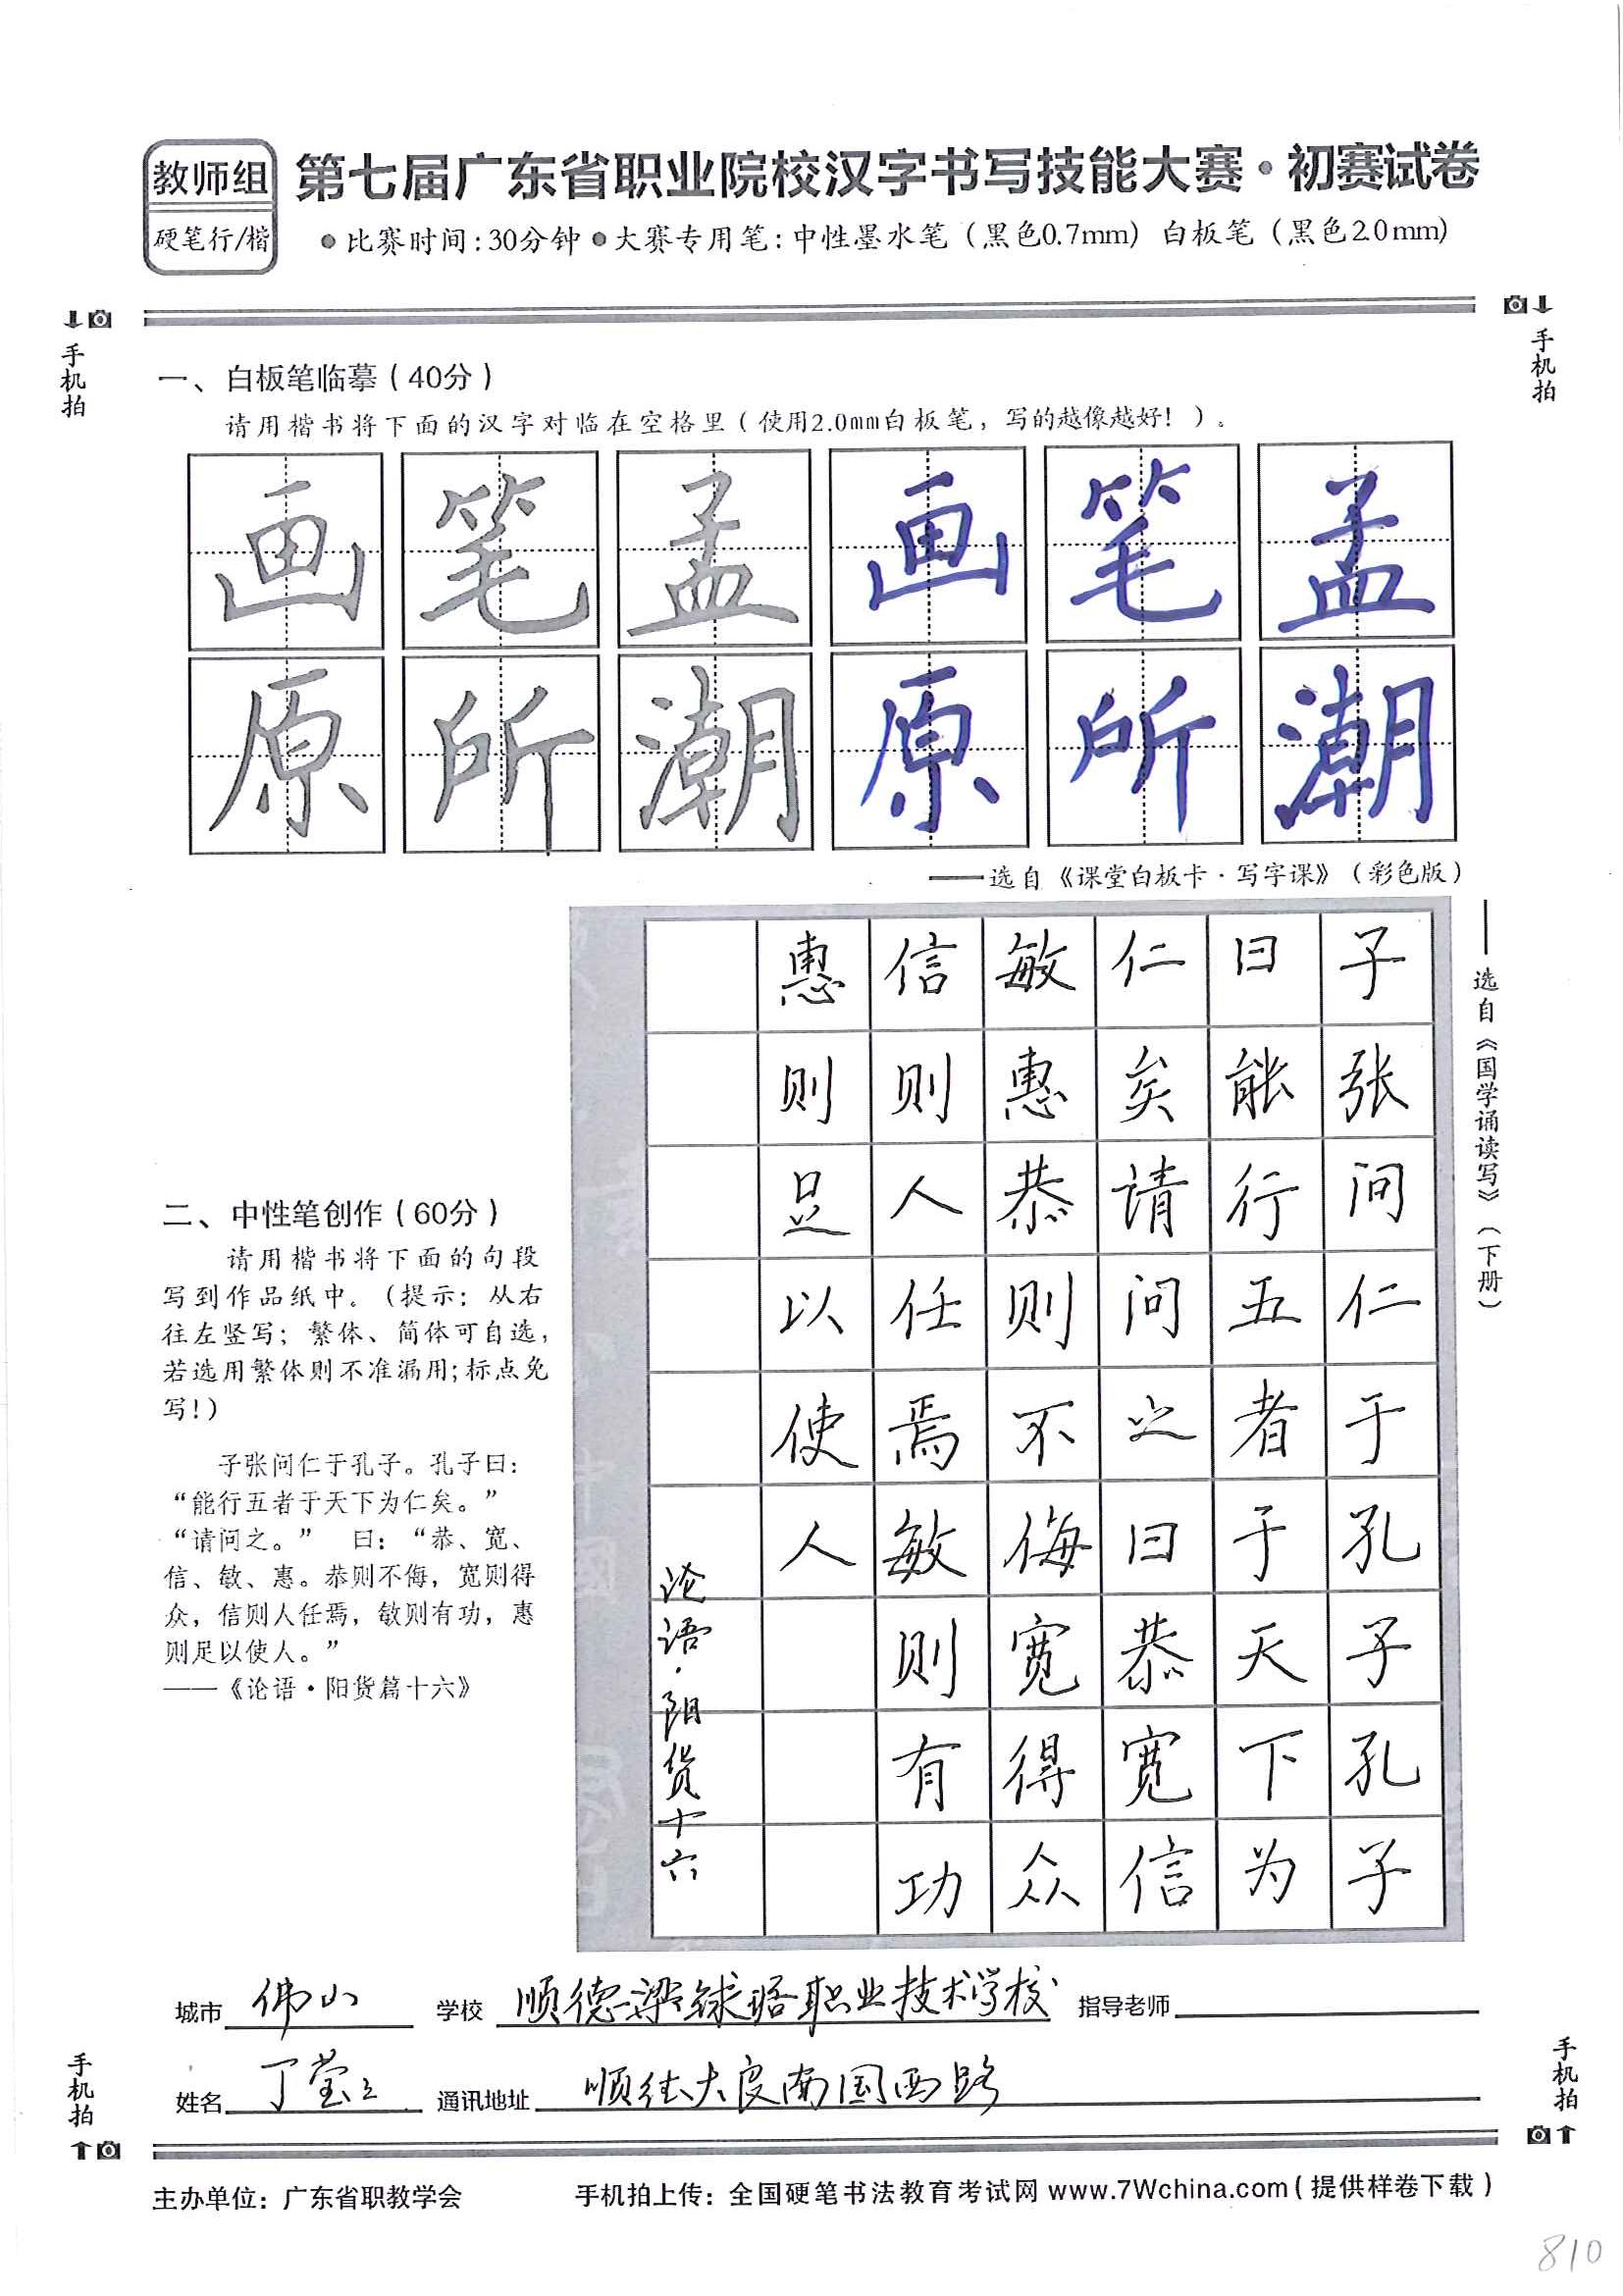 教师组
硬笔行/楷
第七届广东省职业院校汉字书写技能大赛·初赛试卷
●比赛时间:30分钟 ●大赛专用笔:中性墨水笔（黑色0.7mm）白板笔（黑色2.0mm）
手机拍
手机拍
一、白板笔临摹（40分）
请用楷书将下面的汉字对临在空格里（使用2.0mm白板笔，写的越像越好！）。
画笔孟画笔孟
原所潮原所潮
——选自《课堂白板卡·写字课》（彩色版）
——选自《国学诵读写》（下册）
二、中性笔创作（60分）
请用楷书将下面的句段
写到作品纸中。（提示：从右
往左竖写；繁体、简体可自选，
若选用繁体则不准漏用;标点免
写!）
子张问仁于孔子。孔子曰：
“能行五者于天下为仁矣。”
“请问之。” 曰：“恭、宽、
信、敏、惠。恭则不侮，宽则得
众，信则人任焉，敏则有功，惠
则足以使人。”
——《论语·阳货篇十六》
子张问仁于孔子孔子
曰能行五者于天下为
仁矣请问之曰恭宽信
敏惠恭则不侮宽得众
信则人任焉敏则有功
惠则足以使人
论语·阳货十六
城市 佛山 学校 顺德梁銶琚职业技术学校 指导老师
姓名 丁莹 通讯地址 顺德大良南国西路
手机拍
手机拍
主办单位：广东省职教学会 手机拍上传：全国硬笔书法教育考试网 www.7Wchina.com（提供样卷下载）
810